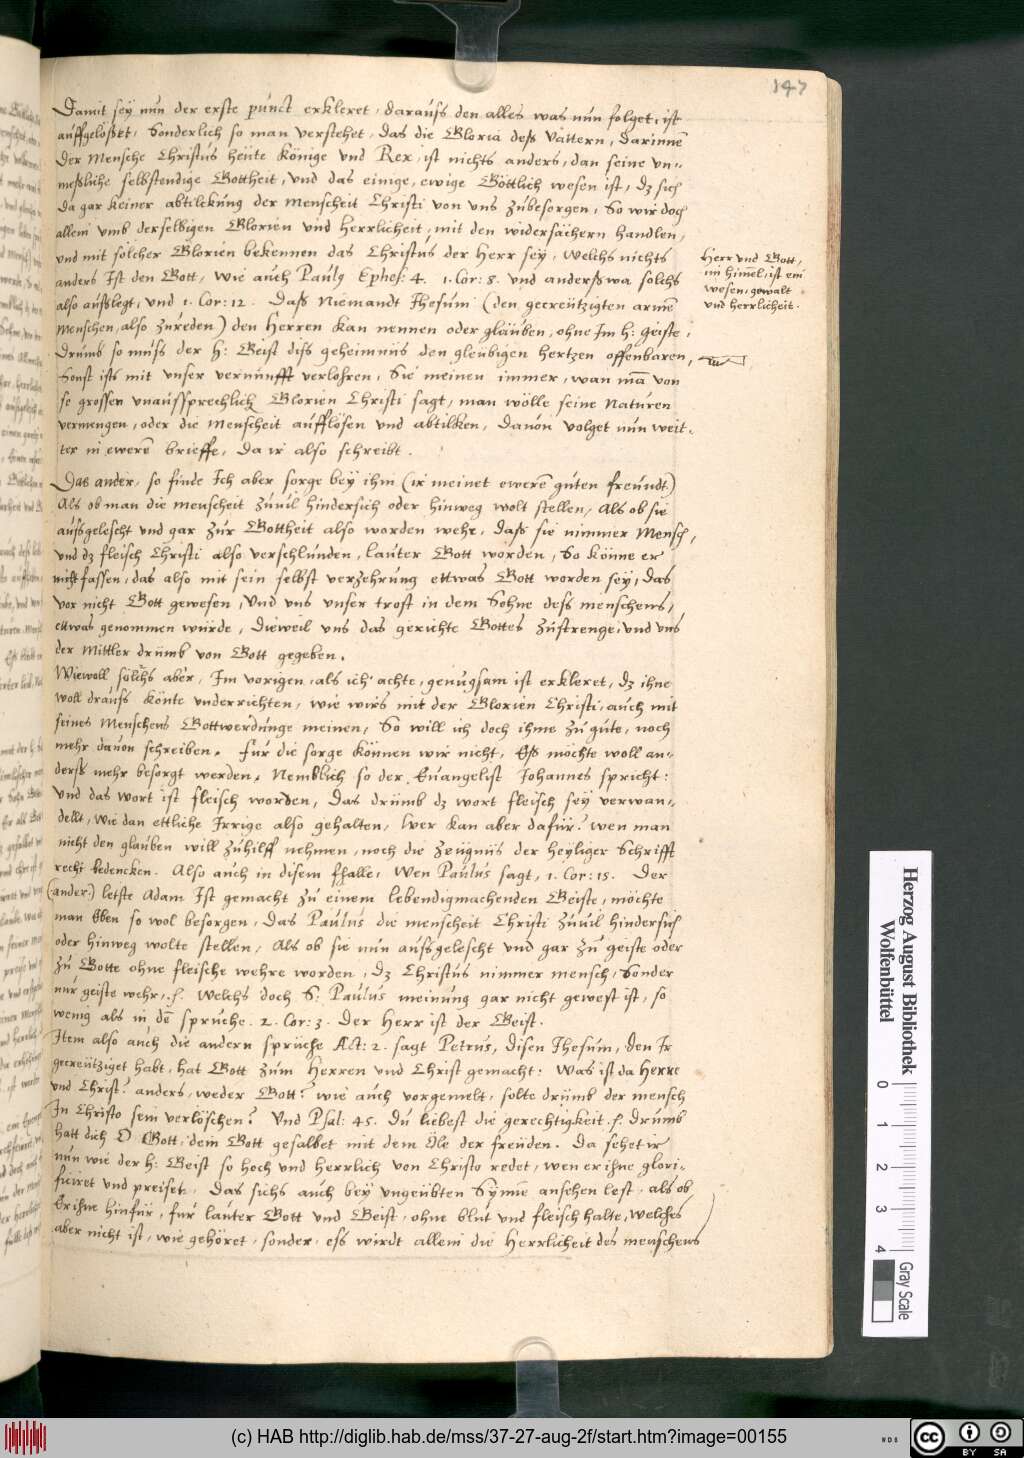 147
Damit sey nun der erste punct erkleret, darauss den alles was nun folget, ist
auffgelößet, Sonderlich so man verstehet, das die Gloria deß Vattern, Darinne
der Mensche Christus heüte Könige und Rex, ist nichts anders, dan seine un-
meßliche selbstendige Gottheit, und das einige, ewige Göttlich wesen ist, dz sich
da gar keiner abtilckung der Menscheit Christi von uns zubesorgen, So wir doch
allein umb derselbigen Glorien und Herrlicheit, mit den widersächern handlen,
und mit solcher Glorien bekennen das Christus der Herr sey, Welchs nichts
anders Ist den Gott, wie auch Paulg Ephes: 4. 1. Cor: 8. und anderßwa solchs
also außlegt, und 1. Cor: 12. Daß Niemandt Jhesum (den gecreützigten arme
Menschen, also zureden) den Herren kan nennen oder gläuben, ohne Im h: geiste,
Drumb so muss der h: Geist diss geheimnüs den gleubigen hertzen offenbaren,
Sonst ists mit unser vernunfft verlohren, Sie meinen immer, wan ma von
so grossen unaussprechlich Glorien Christi sagt, man wölle seine Naturen
vermengen, oder die Menscheit aufflösen und abtilken, Davon volget nun weit-
ter in ewere brieffe, da ir also schreibt.
Das ander, so finde Ich aber sorge bey ihm (ir meinet ewere guten freundt)
Als ob man die menscheit zuuil hindersich oder hinweg wolt stellen, Als ob sie
aussgelescht und gar zur Gottheit also worden wehe, daß sie nimmer Mensch,
und dz fleisch Christi also verschlunden, lauter Gott worden, So könne er
nicht fassen, das also mit sein selbst verzehrung ettwas Gott worden sey, das
vor nicht Gott gewesen, Und uns unser trost in dem Sohne dess menschens,
ettwas genommen würde, Dieweil uns das gerichte Gottes zustrenge, und uns
der Mittler drumb von Gott gegeben.
Wiewoll solchs aber, Im vorigen, als ich achte, genugsam ist erkleret, dz ihne
woll drauss könte underrichten, wie wirs mit der Glorien Christi, auch mit
seines Menschens Gottwerdunge meinen, So will ich doch ihme zu gute, noch
mehr davon schreiben. Für die sorge können wir nicht, Eß möchte woll an-
derß mehr besorgt werden, Nemblich so der Euangelist Johannes spricht:
Und das wort ist fleisch worden, Das drumb dz wort fleisch sey verwan-
dellt, wie dan ettliche Irrige also gehalten, wer kan aber dafür? wen man
nicht den glauben will zuhilff nehmen, noch die zeügnüs der heyliger Schrifft
recht bedencken. Also auch in disem fhalle, Wen Paulus sagt, 1. Cor: 15. Der
(ander:) letste Adam Ist gemacht zu einem lebendigmachenden Geiste, möchte
man Eben so wol besorgen, Das Paulus die menscheit Christi zuuil hindersich
oder hinweg wolte stellen, Als ob sie nun aussgelescht und gar zu geiste oder
zu Gotte ohne fleische wehre worden, dz Christus nimmer mensch, Sonder
nur geiste wehr, Welchs doch S: Paulus meinung gar nicht gewest ist, so
wenig als in de spruche. 2. Cor: 3. Der Herr ist der Geist.
Item also auch die andern sprüche Act: 2. sagt Petrus, disen Jhesum, den Ir
gecreütziget habt, hat Gott zum Herren und Christ gemacht: Was ist da Herre
und Christ? anders, weder Gott? wie auch vorgemelt, solte drumb der mensch
In Christo sein verlöschen? Und Psal: 45. Du liebest die gerechtigkeit Drumb
hatt dich O Gott, dein Gott gesalbet mit dem Öle der freuden. Da sehet ir
nun wie der h: Geist so hoch und herrlich von Christo redet, wen er ihne glori-
ficiret und preiset, Das sichs auch bey ungeübten Synne ansehen lest, als ob
Er ihne hinfür, für lauter Gott und Geist, ohne blut und fleisch halte, welches
aber nicht ist, wie gehöret, sonder, ess wirdt allein die Herrlicheit des menschens
Herr und Gott,
im himel, ist ein
wesen, gewalt
und herrlicheit.
Herzog August Bibliothek
Wolfenbüttel
0 1 2 3 4
Gray Scale
(c) HAB http://diglib.hab.de/mss/37-27-aug-2f/start.htm?image=00155
WDB
cc BY SA